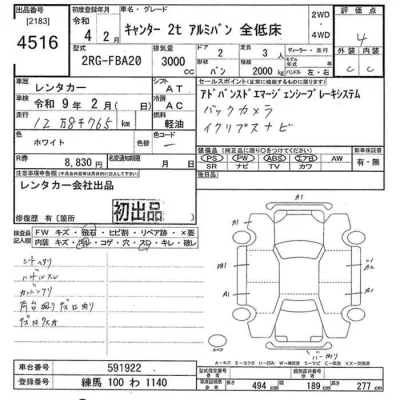 出品番号 [2183] 4516
初度登録年月 令和 4年 2月
車名・グレード キャンター 2t アルミバン 全低床
2WD・4WD
評価点 4
型式 2RG-FBA20
排気量 3000 cc
ドア 2
定員 3人
ディーラー・並行
外装 内装
形状 バン
積載 2000kg
ハンドル 左・右
C C
車歴 レンタカー
シフト AT
車検 令和 9年 2月( 日)
エアコン AC
走行 12万8千765 km
燃料 軽油
色 ホワイト
色替
カラーNo.
R預託金 8,830円
名変期限 月 日
セールスポイント
アドバンスドエマージェンシーブレーキシステム
バックカメラ
イクリプスナビ
新車保証書 有・無
装備品 (純正品に限り○をつけてください)
PS PW ABS エアB AW
SR ナビ TV カワ
後日品
注意事項申告欄
レンタカー会社出品
初出品
修復歴 有(箇所
検査員記入欄
FW キズ・飛石・ヒビ割・リペア跡・×要
内装 キズ・汚・コゲ・穴・スリ・キレ・破レ
シートヘリ
ハンドルスレ
車台番号 591922
登録番号 練馬 100 わ 1140
型式指定番号
類別区分番号
長さ 494 cm
幅 189 cm
高さ 277 cm